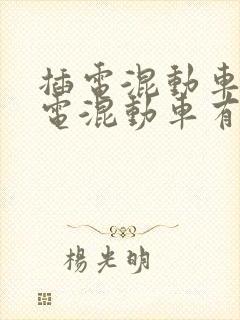 插電混動車
電混動車有
楊光明